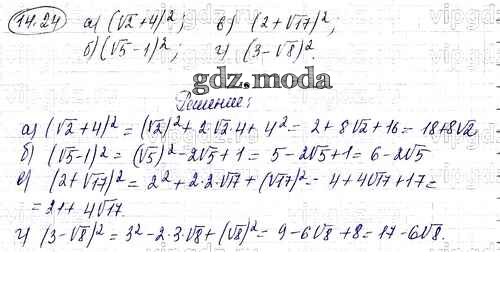 14.24 а) (√2+4)²; в) (2+√17)²;
б) (√5-1)²; г) (3-√8)².
gdz.moda
Решение:
а) (√2+4)² = (√2)²+2·√2·4+4² = 2+8√2+16 = 18+8√2
б) (√5-1)² = (√5)²-2√5+1 = 5-2√5+1 = 6-2√5
в) (2+√17)² = 2²+2·2·√17+(√17)² = 4+4√17+17=
=21+4√17.
г) (3-√8)² = 3²-2·3·√8+(√8)² = 9-6√8+8=17-6√8.